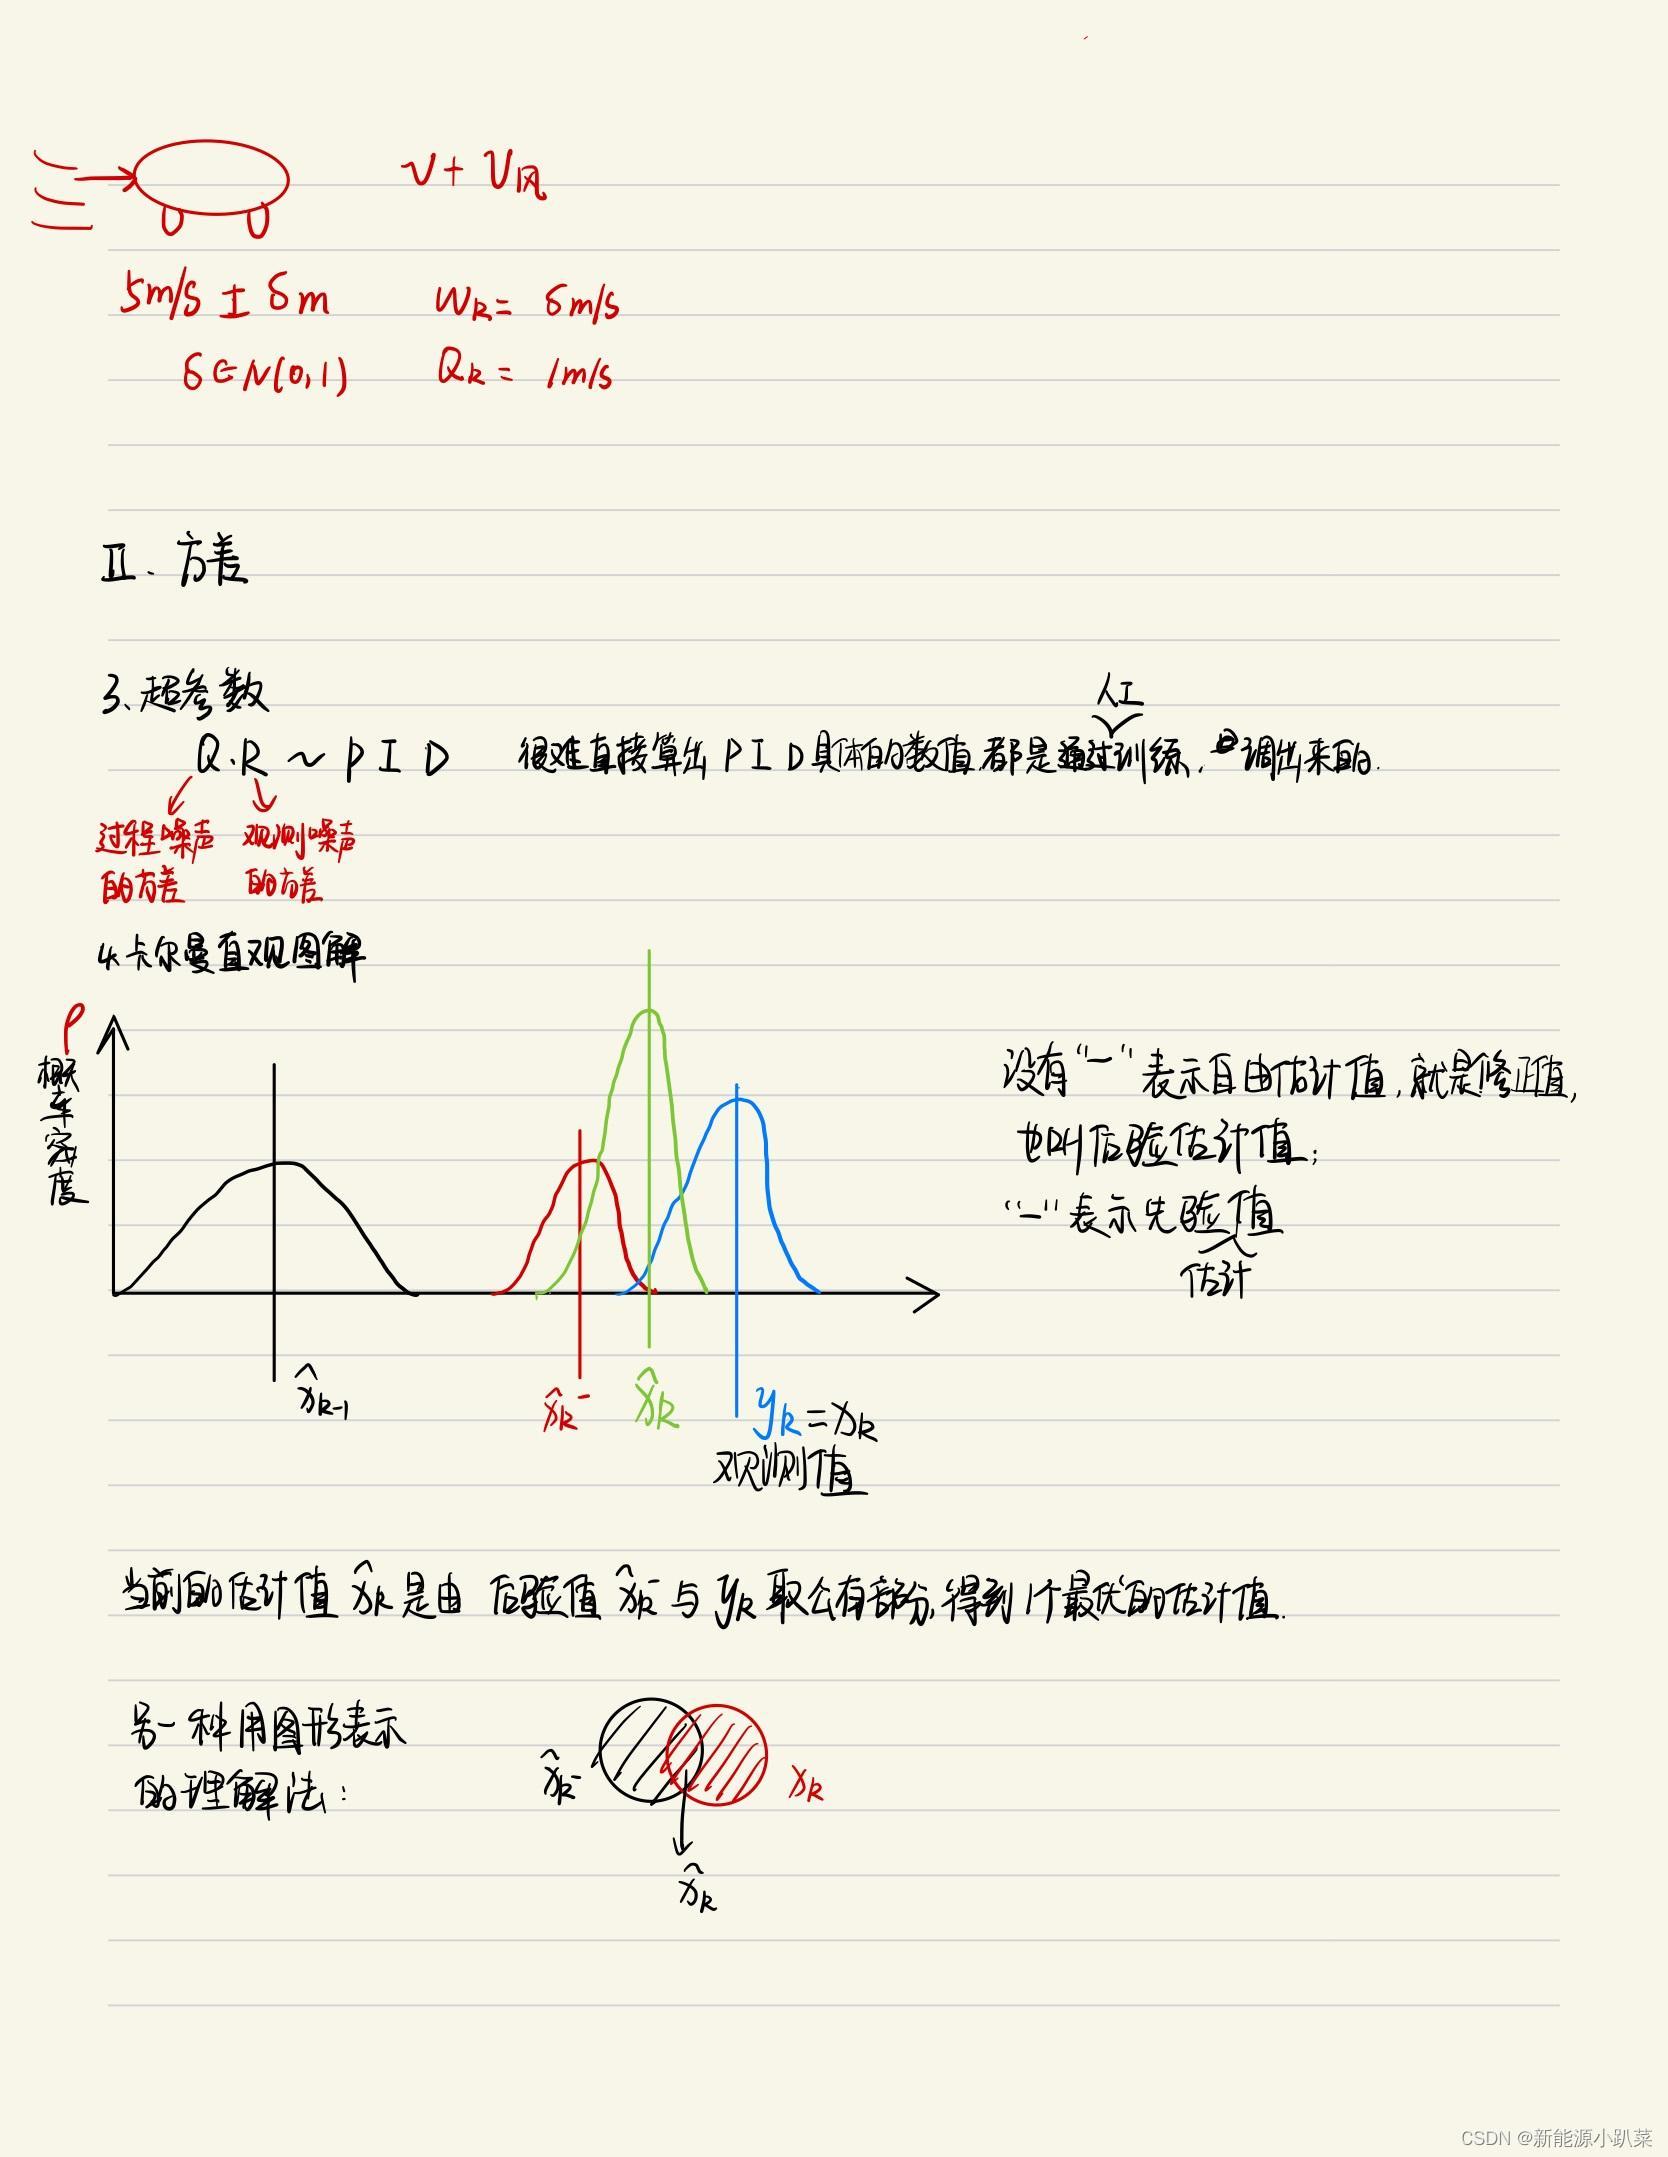 v + v风
5m/s ± δm
W_k = δm/s
δ∈N(0,1)
Q_k = 1m/s
Ⅱ. 方差
3、超参数
人工
Q.R ~ PID 很难直接算出PID具体的数值,都是通过训练,调出来的.
过程噪声的方差
观测噪声的方差
4.卡尔曼直观图解
ρ
概率密度
没有“-”表示自由估计值,就是修正值,
也叫后验估计值;
“-”表示先验值
估计
x̂_{k-1}
x̂_k⁻
x̂_k
y_k = x_k
观测值
当前的估计值 x̂_k 是由 后验值 x̂_k⁻ 与 y_k 取公有部分,得到1个最优的估计值.
另一种用图形表示
的理解法:
x̂_k⁻
x_k
x̂_k
CSDN @新能源小趴菜